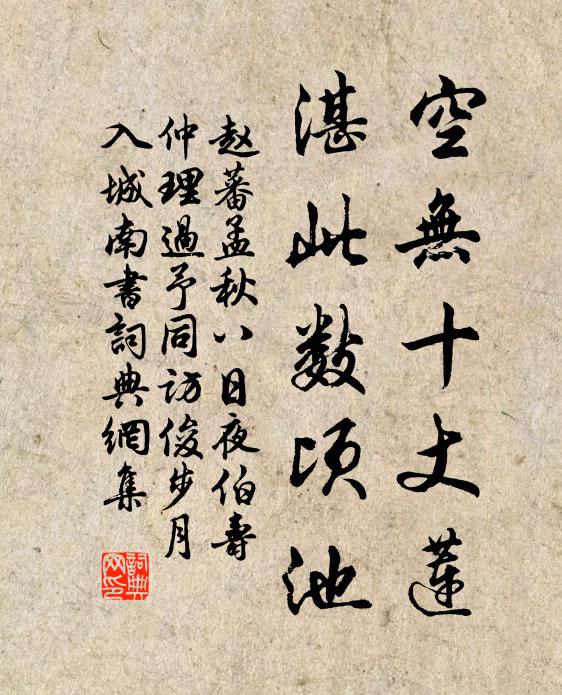 空無十丈蓮
湛此数頃池
赵蕃孟秋八日夜伯壽
仲理過予同访俊步月
入城南書詞典網集
詞典
网印